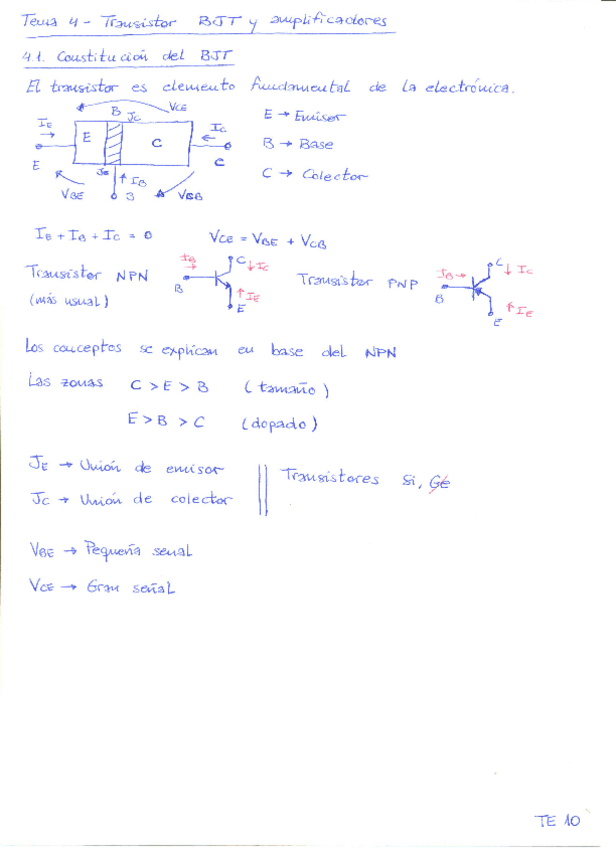 Tema 4 - Transistor BJT y amplificadores
4.1. Constitución del BJT
El transistor es elemento fundamental de la electrónica.
VCE
B JC
IE E C IC
E JE IB C
VBE B VCB
E → Emisor
B → Base
C → Colector
IE + IB + IC = 0 VCE = VBE + VCB
Transistor NPN
(más usual)
IB C IC
B IE
E
Transistor PNP
IB C IC
B IE
E
Los conceptos se explican en base del NPN
Las zonas C > E > B (tamaño)
E > B > C (dopado)
JE → Unión de emisor
JC → Unión de colector
Transistores Si, Ge
VBE → Pequeña señal
VCE → Gran señal
TE 10